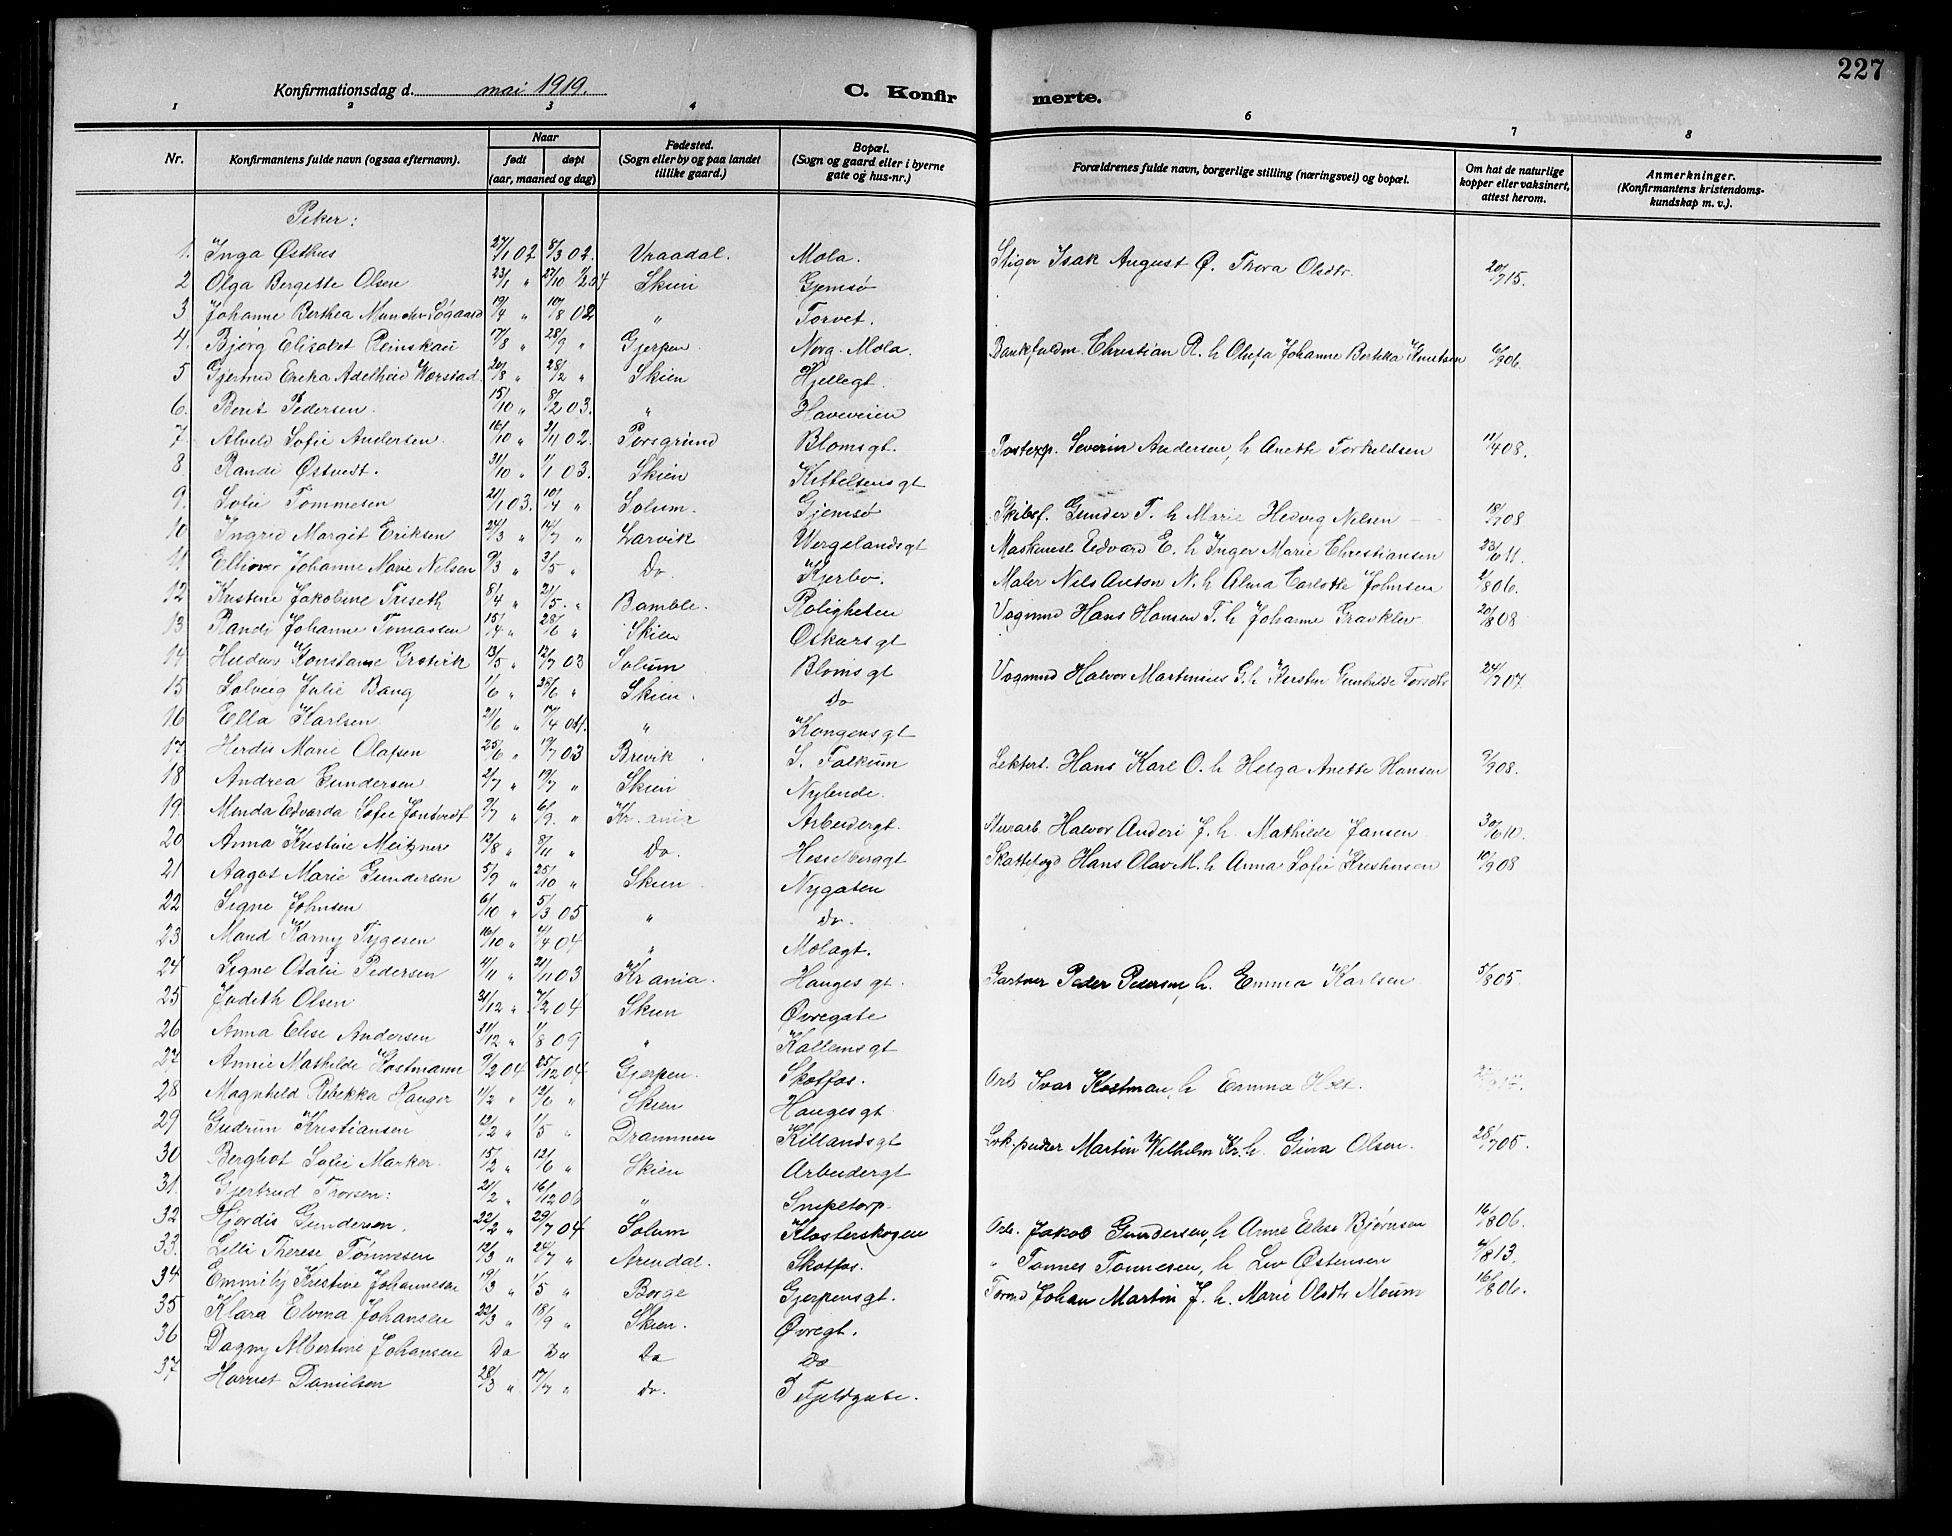 227
Konfirmationsdag d. mai 1919.
C. Konfirmerte.
1 2 3 4 5 6 7 8
Nr. Konfirmantens fulde navn (ogsaa efternavn). Naar født døpt (aar, maaned og dag) Fødested. (Sogn eller by og paa landet tillike gaard.) Bopæl. (Sogn og gaard eller i byerne gate og hus-nr.) Forældrenes fulde navn, borgerlige stilling (næringsvei) og bopæl. Om hat de naturlige kopper eller vaksinert, attest herom. Anmerkninger. (Konfirmantens kristendomskundskap m. v.).
Piker:
1. Inga Østhus 27/1 02 8/3 02. Vraadal. Mola. Stiger Isak August Ø. Thora Olsdtr. 20/7 15.
2 Olga Bergitte Olsen 23/1 " Skien Gjemsø
3 Johanne Berthea Munch-Søgaard 19/4 " 10/8 02 " Torvet.
4. Bjørg Elisabet Reinskau 17/8 " 28/9 " Gjerpen. Norg. Mola. Bankfuldm. Christian R. h Olufa Johanne Bertha Knutsen
5 Gjermd Erika Adelheid Værstad. 20/8 " 28/12 " Skien Hjellegt.
6. Berit Pedersen. 15/10 " 8/2 03. " Haveveien
7. Alvild Sofie Andersen. 16/10 " 2/11 02. Porsgrund Blomsgt. Postexp. Severin Andersen, h Anette Torkildsen 11/4 08.
8 Randi Østvedt. 31/10 " 1/1 03. Skien Kittelsensgt
9. Sofie Tommesen 21/1 03. 10/4 " Solum. Gjemsø Skibsf. Gunder T. h Marie Hedvig Nilsen 18/9 08
10 Ingrid Margit Eriksen 24/3 " 14/7 " Larvik Wergelandsgt Maskinest. Edvard E. h Inger Marie Christiansen 23/6 11.
11 Ellinor Johanne Marie Nilsen 9/3 " 3/5 " Do. Kjerbo. Maler Nils Anton N. h Alma Carlotte Johnsen 2/8 06.
12 Kristine Jakobine Triseth 8/4 " 21/5. " Bamble. Roligheten Vognmd Hans Hansen T. h Johanne Gravklev 20/8 08
13 Randi Johanne Tomassen 15/4 " 28/6 " Skien Oskarsgt
14 Huldur Konstanse Grotvik 13/5 " 12/7 03 Solum Blomsgt Vognmd Halvor Martinius G. h Kirsten Gunhilde Torsdtr 24/7 07.
15 Solveig Julie Bang 1/6 " 28/6 " Skien. Do
16 Ella Karlsen 21/6 " 17/4 04. " Kongensgt
17. Herdis Marie Olafsen 25/6 " 19/7 03 Brevik S. Falkum Lektert. Hans Karl O. h Helga Anette Hansen 9/9 08.
18 Andrea Gundersen 2/7 " 19/7 " Skien Nylende.
19. Minda Edvarda Sofie Jontvedt 9/7 " 6/9. " Kr.ania Arbeidergt. Murarb Halvor Anders J. h. Mathilde Jansen 30/6 10.
20 Anna Kristine Meitzner 12/8 " 8/11 " Do. Hesselbergsgt Skattefogd Hans Olav M. h Anna Sofie Kristensen 10/9 08
21 Aagot Marie Gundersen 5/9 " 25/10 " Skien. Nygaten
22 Signe Johnsen 6/10 " 5/3 05 " Do.
23 Maud Karny Tygesen 16/10 " 4/4 04 " Molagt.
24 Signe Otalie Pedersen 4/11 " 21/11 03 Kr ania. Haugesgt. Gartner Peder Pedersen, h. Emma Karlsen 5/8 05
25 Judith Olsen 31/12 " 7/2 04 Skien Øvregate
26 Anna Elise Andersen 31/12 " 1/8 09 " Kallemsgt
27. Annie Mathilde Kostmann 9/2 04 25/12 04 Gjerpen. Skotfos. Arb Ivar Kostman, h Emma Holt.
28 Magnhild Rebekka Hanger 11/2 " 12/6 " Skien Haugesgt
29 Gudrun Kristiansen 12/2 " 1/5 " Drammen Killandsgt Lok.pudser Martin Wilhelm Kr. h. Gina Olsen. 28/7 05.
30 Berghot Sofie Marker. 15/2 " 12/6 " Skien Arbeidergt
31. Gjertrud Thorsen: 21/2 " 16/12 06 " Snipetorp.
32 Hjørdis Gundersen. 22/2 " 29/7 04 Solum Klosterskogen Arb. Jakob Gundersen, h Anne Elise Bjørnsen 16/8 06.
33. Lilli Therese Tønnesen 12/3 " 24/7 " Arendal. Skotfos. " Tønnes Tønnesen, h Liv Ostensen 4/8 13.
34 Emmily Kristine Johannesen 19/3 " 1/5 " Borge Gjerpensgt. Tømd Johan Martin J. h. Marie Olsdtr Moum 16/8 06.
35 Klara Elvina Johansen 22/3 " 18/9 " Skien. Øvregt.
36 Dagny Albertine Johansen Do Do Do Do
37 Harriet Danielsen 28/3 " 17/7 " Do. I Fjeldgate.